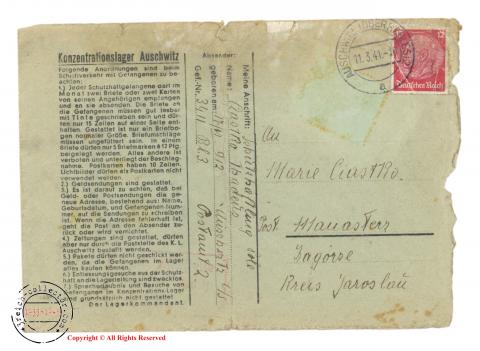 Konzentrationslager Auschwitz
Folgende Anordnungen sind beim
Schriftverkehr mit Gefangenen zu be-
achten:
1.) Jeder Schutzhaftgefangene darf im
Monat zwei Briefe oder zwei Karten
von seinen Angehörigen empfangen
und an sie absenden. Die Briefe an
die Gefangenen müssen gut lesbar
mit Tinte geschrieben sein und dür-
fen nur 15 Zeilen auf einer Seite ent-
halten. Gestattet ist nur ein Briefbo-
gen normaler Größe. Briefumschläge
müssen ungefüttert sein. In einem
Briefe dürfen nur 5 Briefmarken à 12 Pfg.
beigelegt werden. Alles andere ist
verboten und unterliegt der Beschlag-
nahme. Postkarten haben 10 Zeilen.
Lichtbilder dürfen als Postkarten nicht
verwendet werden.
2.) Geldsendungen sind gestattet.
3.) Es ist darauf zu achten, daß bei
Geld- oder Postsendungen die ge-
naue Adresse, bestehend aus: Name,
Geburtsdatum, und Gefangenen Num-
mer, auf die Sendungen zu schreiben
ist. Wenn die Adresse fehlerhaft ist,
geht die Post an den Absender zu-
rück oder wird vernichtet.
4.) Zeitungen sind gestattet, dürfen
aber nur durch die Poststelle des K. L.
Auschwitz bestellt werden.
5.) Pakete dürfen nicht geschickt wer-
den, da die Gefangenen im Lager
alles kaufen können.
6.) Entlassungsgesuche aus der Schutz-
haft an die Lagerleitung sind zwecklos.
7.) Sprecherlaubnis und Besuche von
Gefangenen im Konzentrations-Lager
sind grundsätzlich nicht gestattet.
Der Lagerkommandant.
Absender:
Meine Anschrift:
Name:
geboren am:
Gef.-Nr.
Postamt 2
AUSCHWITZ
11.3.41
a
12
Deutsches Reich
An
Marie
Post
Zagórze
Kreis Jaroslau
Copyright © All Rights Reserved